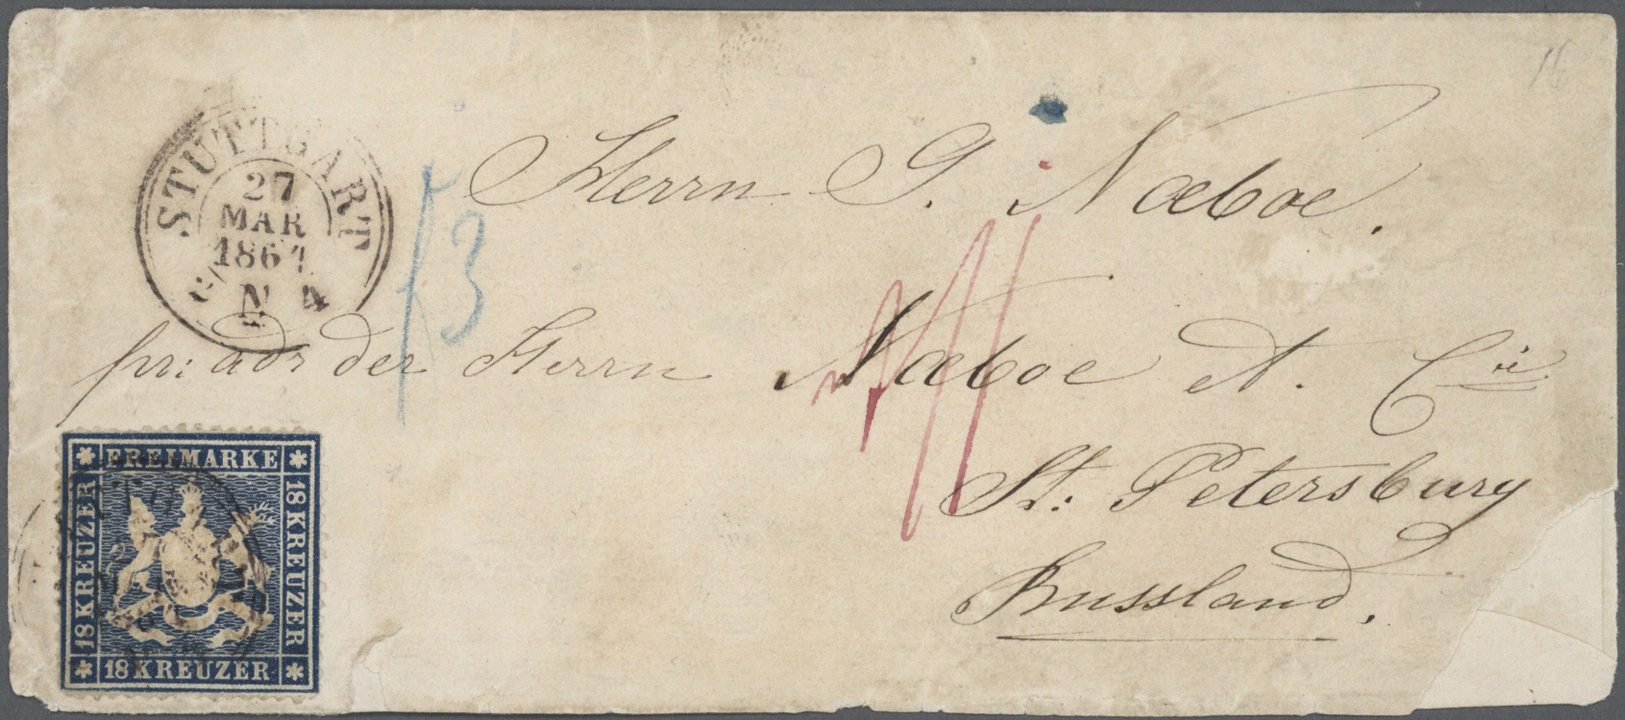 16
STUTTGART
27
MAR
1867
N 4
f3
Herrn G. Naeboe.
pr: adr der Herrn Naeboe et. Cie
St: Petersburg
Russland.
FREIMARKE
18 KREUZER
18 KREUZER
18 KREUZER